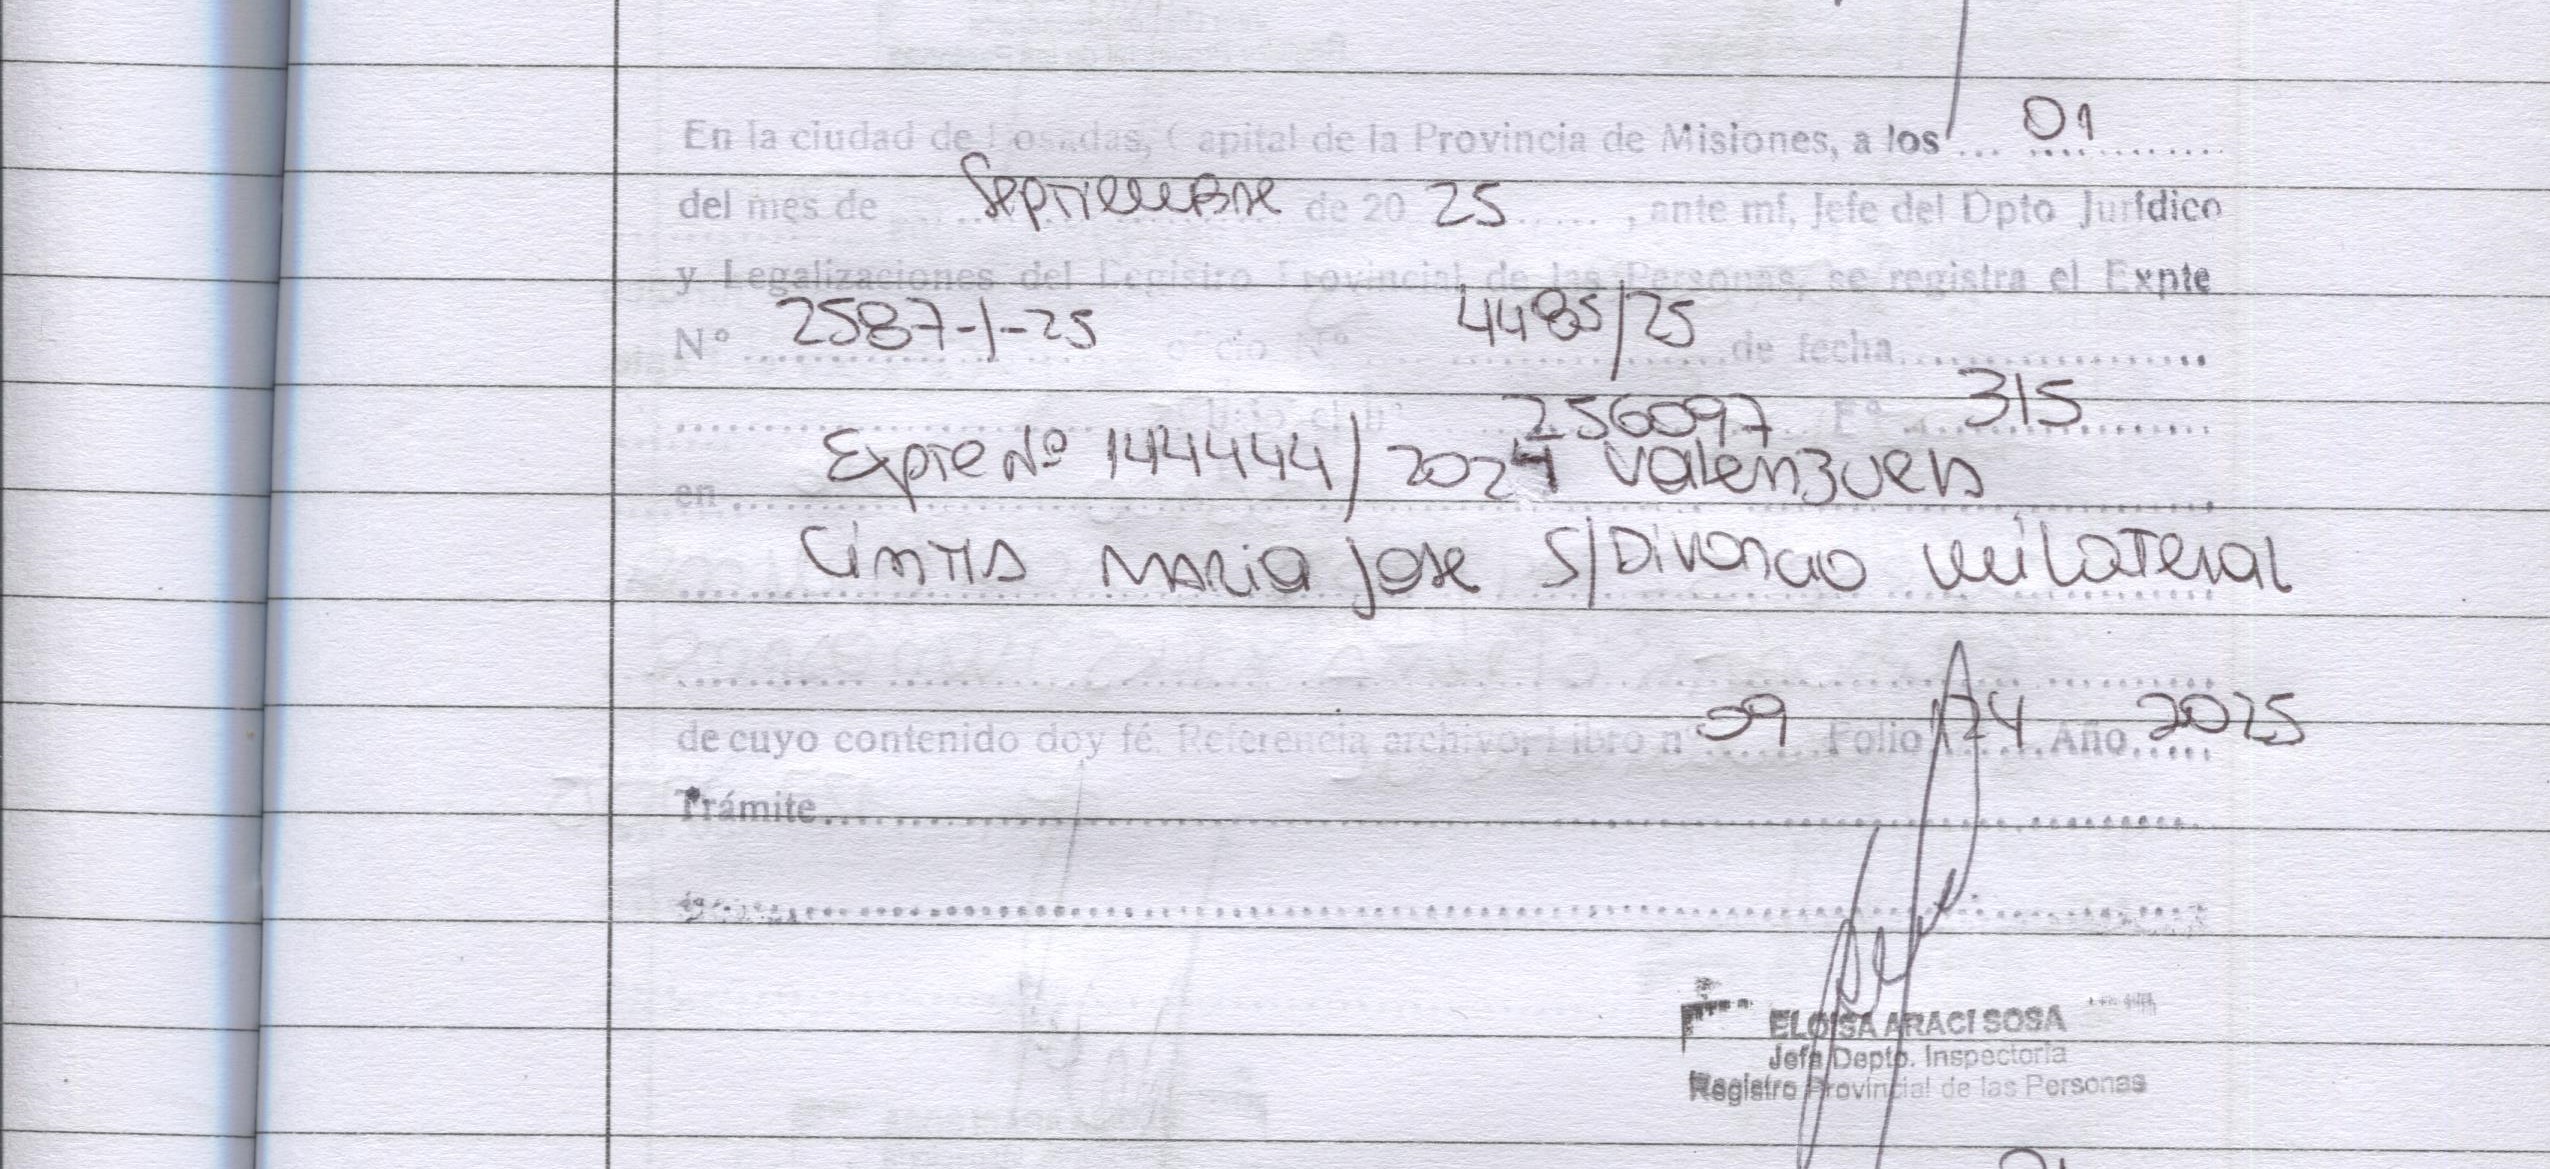 En la ciudad de Posadas, Capital de la Provincia de Misiones, a los ... 01
del mes de Septiembre de 20 25 , ante mí, Jefe del Dpto Jurídico
y Legalizaciones del Registro Provincial de las Personas, se registra el Expte
Nº 2587-1-25 oficio Nº 4485/25 de fecha
256097 Fº 315
en Expte Nº 144444/2024 Valenzuela
Cintia Maria Jose S/Divorcio unilateral
de cuyo contenido doy fé. Referencia archivo, Libro nº 09 Folio 124 Año 2025
Trámite
ELOISA ARACI SOSA
Jefa Depto. Inspectoria
Registro Provincial de las Personas